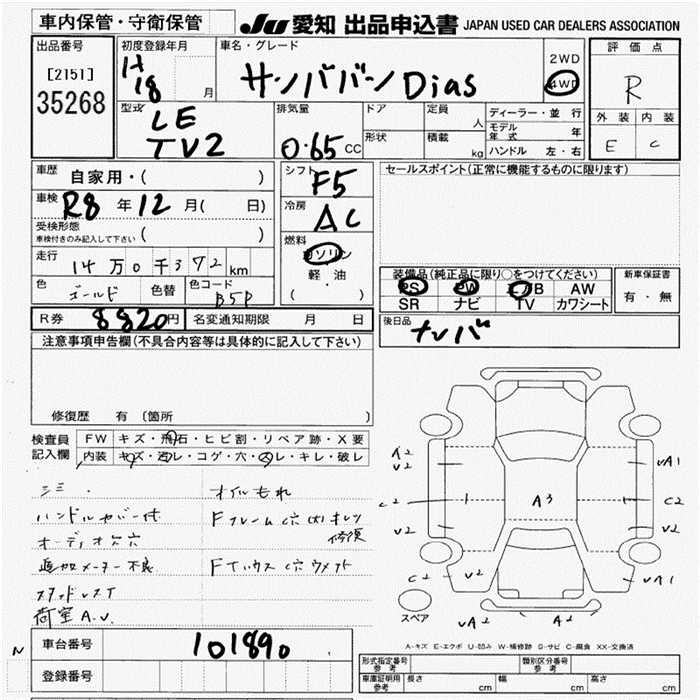 車内保管・守衛保管
JU 愛知 出品申込書 JAPAN USED CAR DEALERS ASSOCIATION
出品番号
[2151]
35268
初度登録年月
H
18 月
車名・グレード
サンババン Dias
2WD
4WD
評価点
R
外装 内装
E C
型式
LE
TV2
排気量
0.65 CC
ドア
形状
定員 人
積載 kg
ディーラー・並行
モデル年式 年
ハンドル 左・右
車歴
自家用・( )
車検
R8 年 12 月( 日)
受検形態
車検付きのみ記入して下さい ( )
走行
14万0千372km
色 ゴールド 色替 色コード B5P
R券 8820円 名変通知期限 月 日
シフト
F5
冷房
AC
燃料
ガソリン
軽・油
( ・ )
セールスポイント(正常に機能するものに限ります)
装備品(純正品に限り○をつけてください)
PS PW エアB AW
SR ナビ TV カワシート
新車保証書
有・無
後日品
ナンバ
注意事項申告欄(不具合内容等は具体的に記入して下さい)
修復歴 有 〔箇所
検査員
記入欄
FW キズ・飛石・ヒビ割・リペア跡・X要
内装 キズ・汚レ・コゲ・穴・スレ・キレ・破レ
ハンドルカバー付
オーディオ穴穴
追加メーター不良
荷室A.U
オイルもれ
Fフレーム穴(大)オレツ
修復
Fハウス穴ウメアト
A2
V2
C2
V2
C2
V2
A3
VA1
C2
V2
VA1
VA2
A2
スペア
A-キズ E-エクボ U-凹み W-補修跡 S-サビ C-腐食 XX-交換済
N
車台番号
101890
登録番号
型式指定番号
参考
類別区分番号
参考
車庫証明用
参考
長さ cm 幅 cm 高さ cm